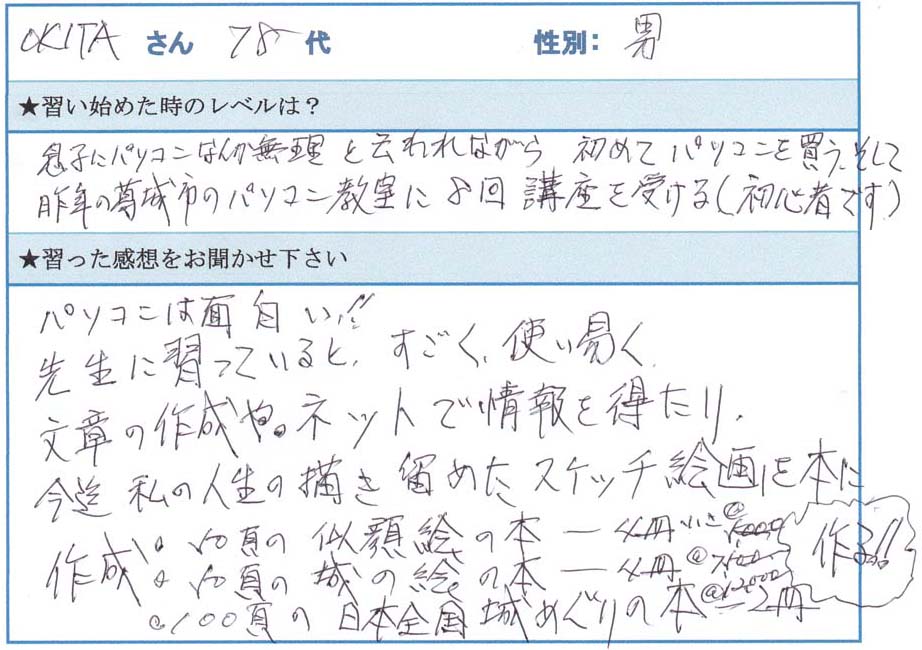 OKITA さん 78代 性別: 男
★習い始めた時のレベルは？
息子にパソコンなんか無理と云われながら 初めてパソコンを買う、そして
昨年の葛城市のパソコン教室に8回 講座を受ける(初心者です)
★習った感想をお聞かせ下さい
パソコンは面白い!!
先生に習っていると、すごく、使い易く、
文章の作成や。ネットで情報を得たり、
今迄 私の人生の描き留めたスケッチ絵画を本に
作成 。50頁の似顔絵の本 ― 4冊
。50頁の城の絵の本 ― 4冊
。100頁の日本全国城めぐりの本 ― 2冊
作る!!